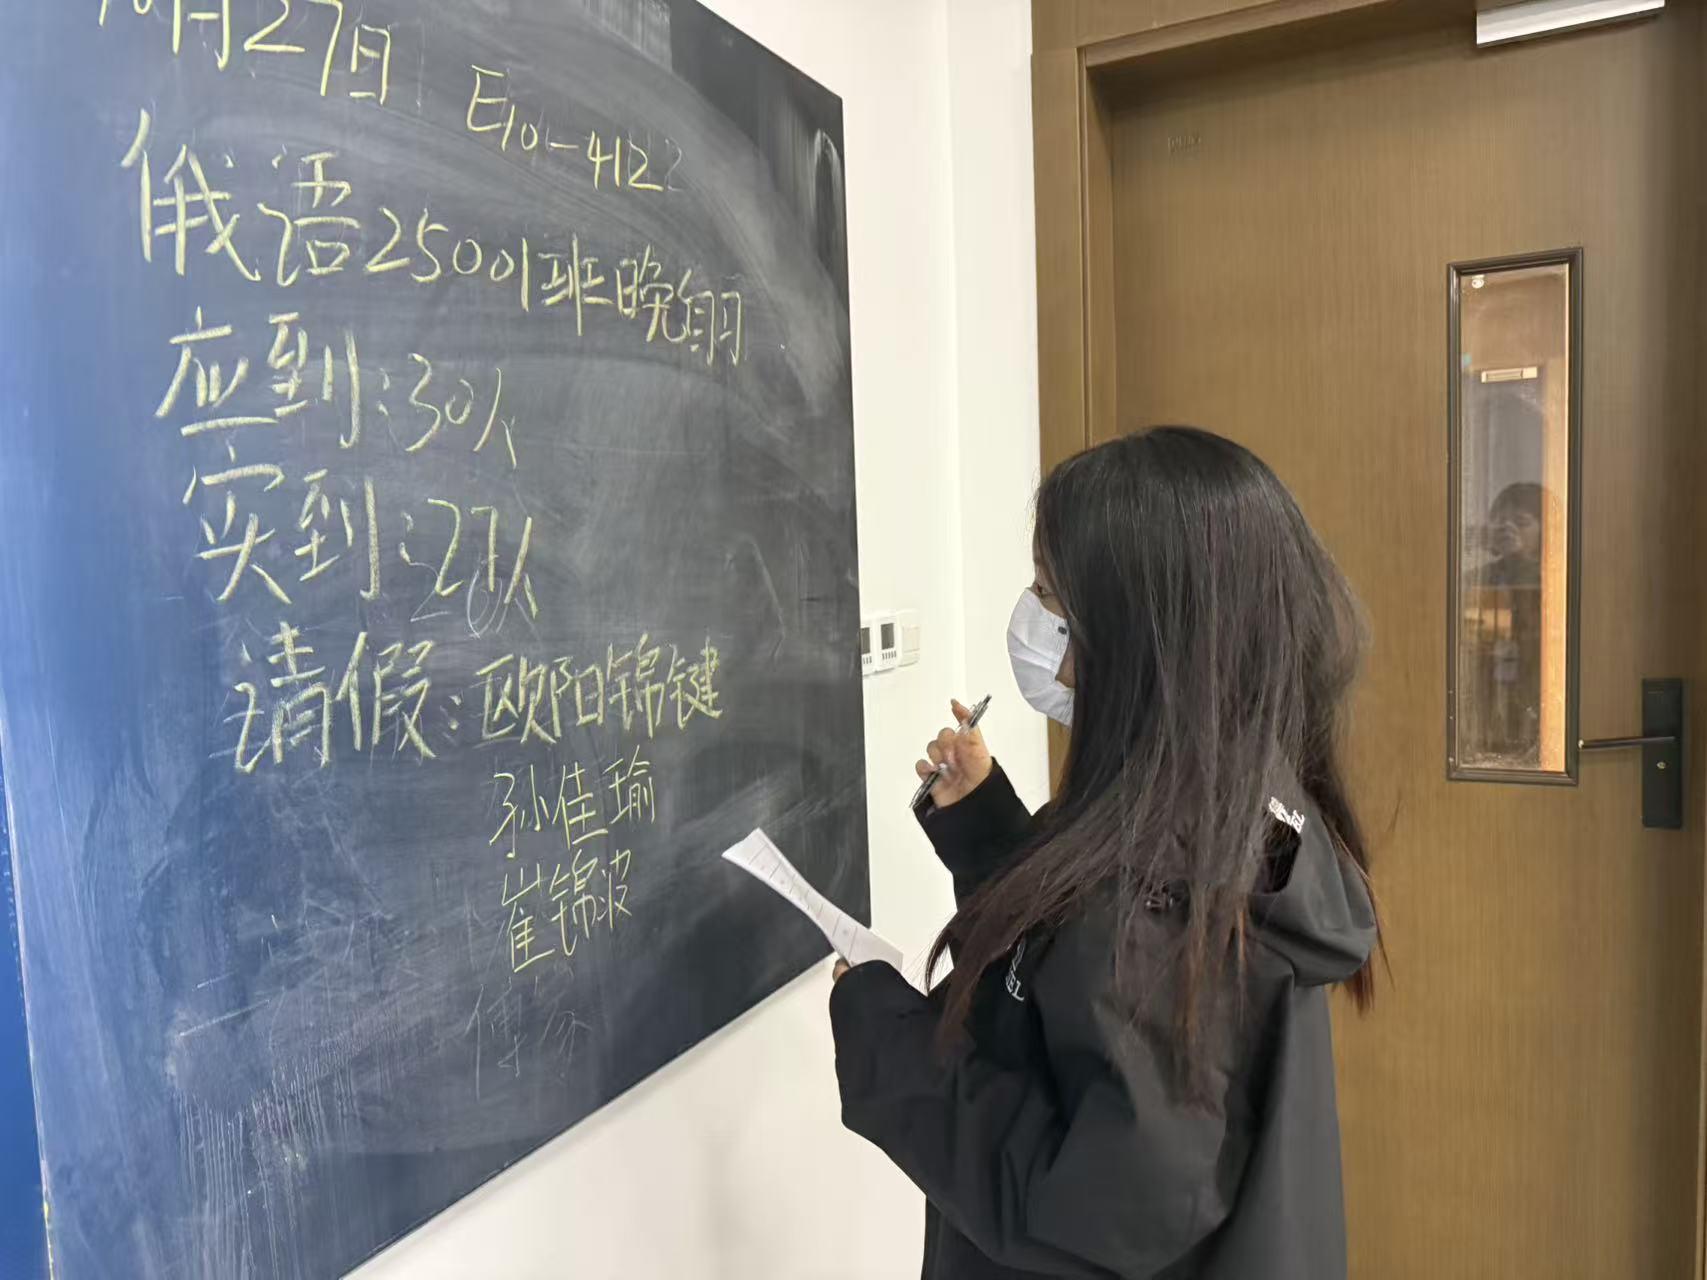 10月27日
E10-4122
俄语25001班晚自习
应到:30人
实到:27人
请假:欧阳锦键
孙佳瑜
崔锦波